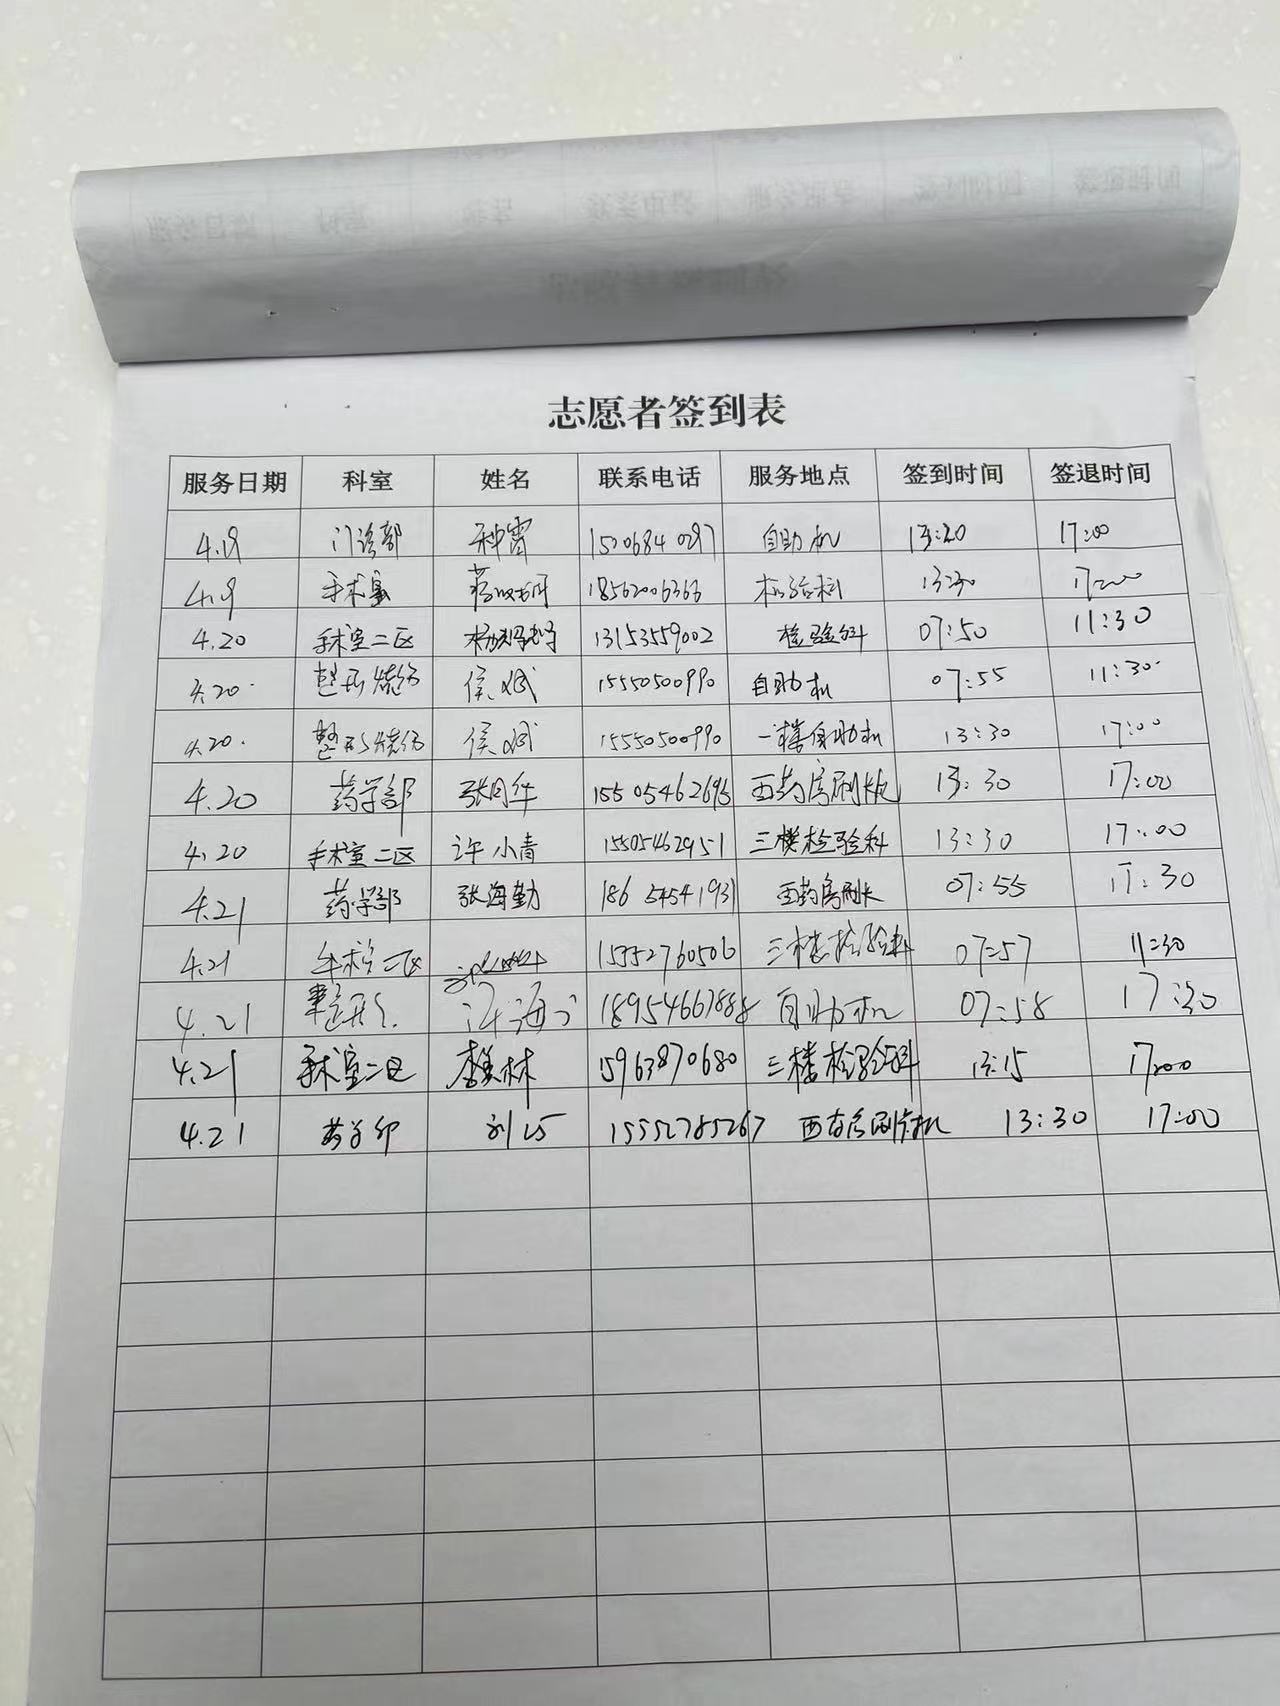 志愿者签到表
服务日期 科室 姓名 联系电话 服务地点 签到时间 签退时间
4.19 门诊部 种霄 15206840297 自助机 13:20 17:00
4.19 手术室 18562006366 检验科 13:30 17:00
4.20 手术室二区 13153559002 检验科 07:50 11:30
4.20. 整形烧伤 侯斌 15550500990 自助机 07:55 11:30.
4.20. 整形烧伤 侯斌 15550500990 一楼自助机 13:30 17:00
4.20 药学部 张月华 西药房刷卡 13:30 17:00
4.20 手术室二区 许小青 15505462951 三楼检验科 13:30 17:00
4.21 药学部 张海勤 18654541931 西药房刷卡 07:55 11:30
4.21 手术室二区 15552760506 三楼检验科 07:57 11:30
4.21 整形. 18954667888 自助机 07:58 17:30
4.21 手术室二区 李美林 15963870680 三楼检验科 13:15 17:00
4.21 药学部 15552785267 西药房刷卡机 13:30 17:00